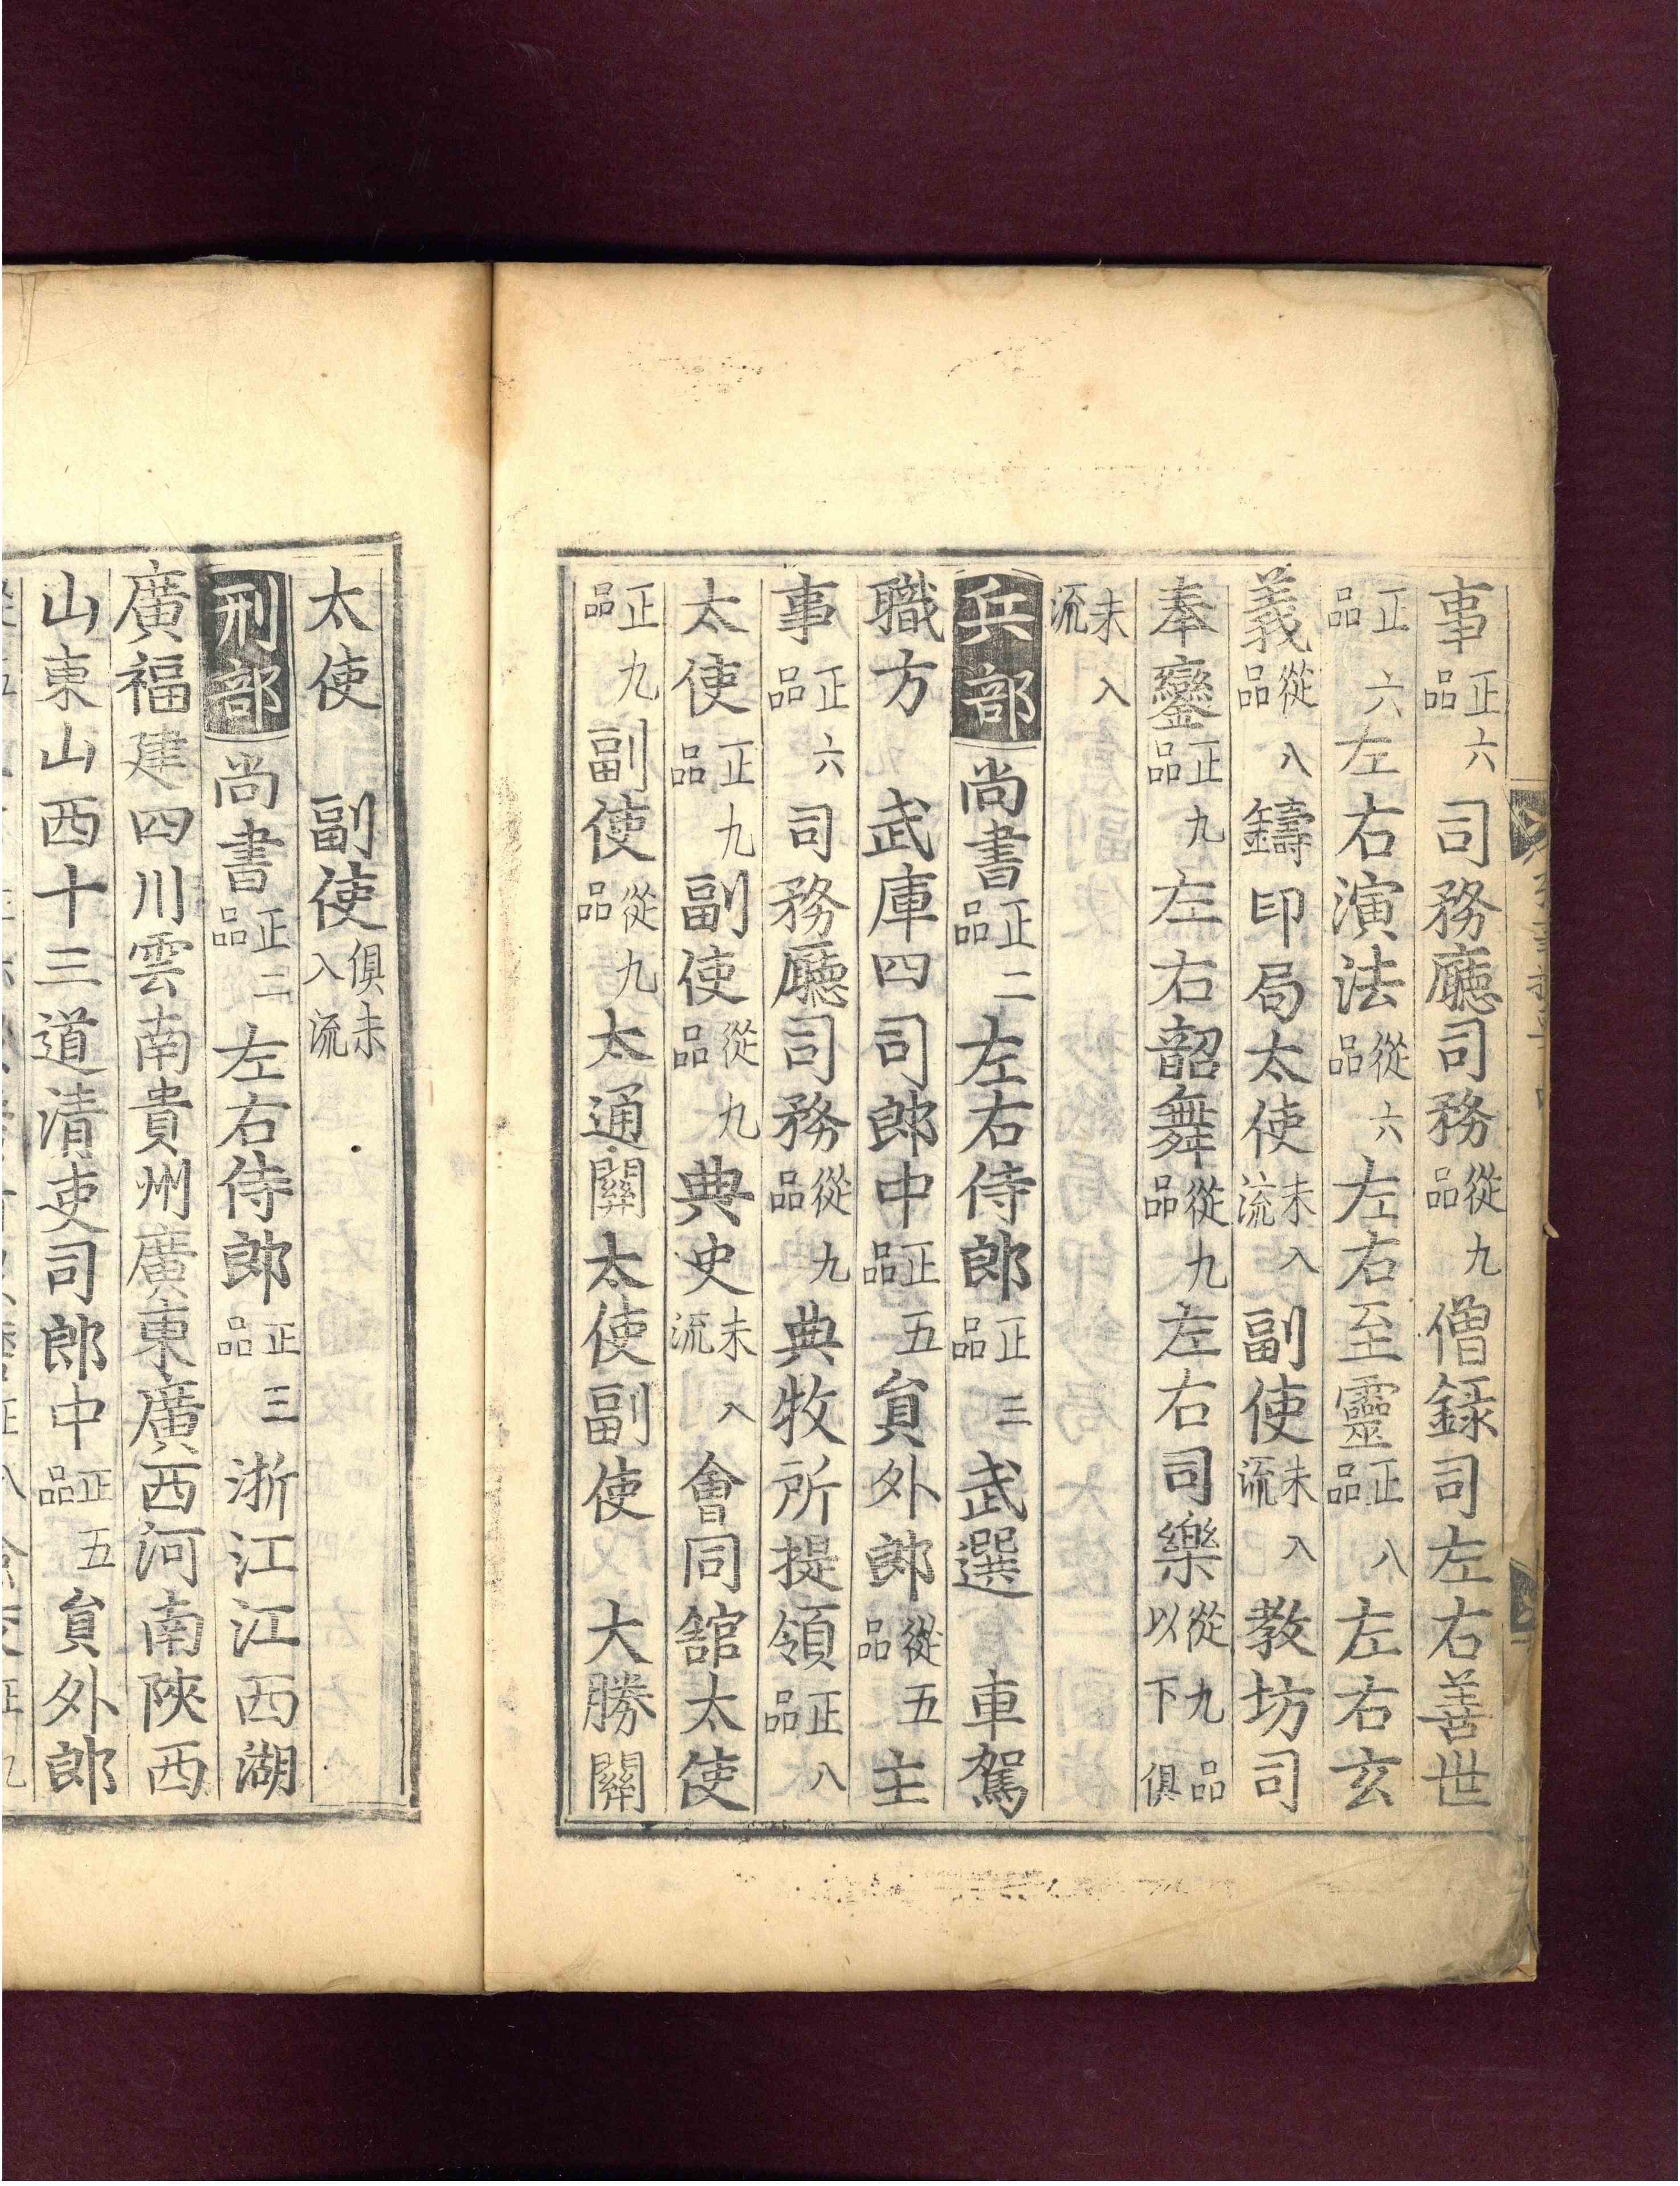 事正六品司務廳司務從九品僧録司左右善世
正六品左右演法從六品左右至靈正八品左右玄
義從八品鑄印局太使未入流副使未入流教坊司
奉鑾正九品左右韶舞從九品左右司樂從九品以下俱
未入流
兵部尚書正二品左右侍郎正三品武選 車駕
職方 武庫四司郎中正五品貟外郎從五品主
事正六品司務廳司務從九品典牧所提領正八品
太使正九品副使從九品典史未入流會同舘太使
正九品副使從九品太通關太使副使 大勝關
太使 副使俱未入流
刑部尚書正二品左右侍郎正三品浙江江西湖
廣福建四川雲南貴州廣東廣西河南陜西
山東山西十三道清吏司郎中正五品貟外郎